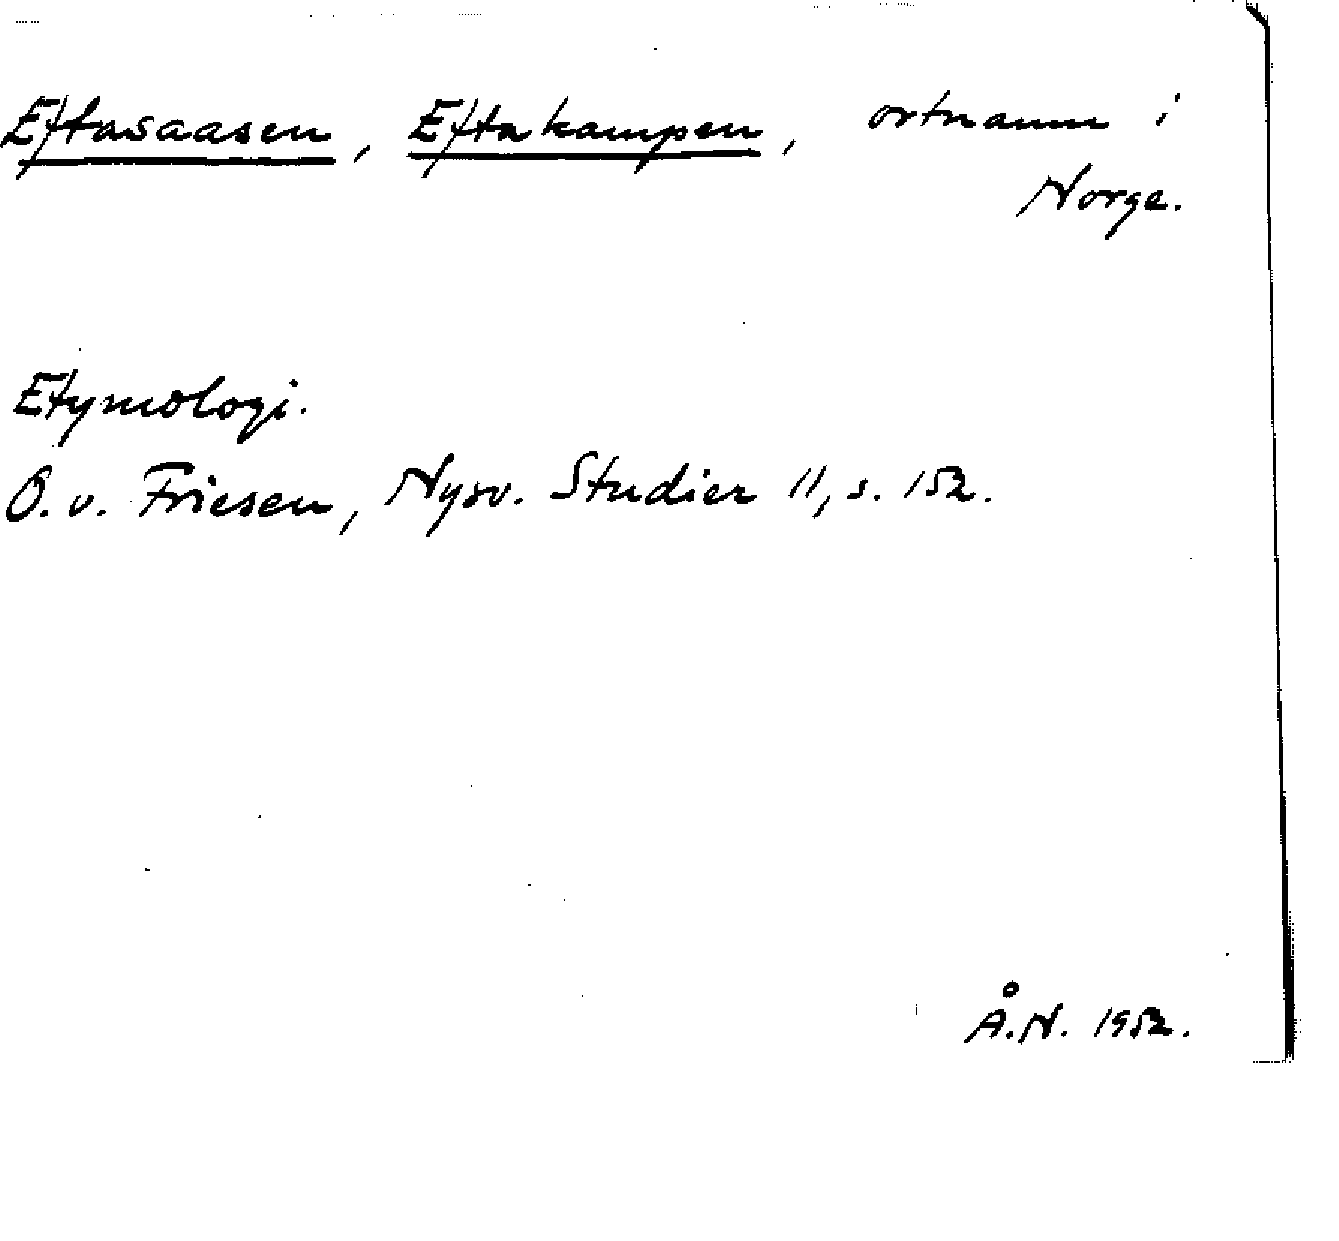 Eftasaasen, Eftakampen, ortnamn i
Norge.
Etymologi.
O. v. Friesen, Nysv. Studier 11, s. 152.
Å.N. 1952.